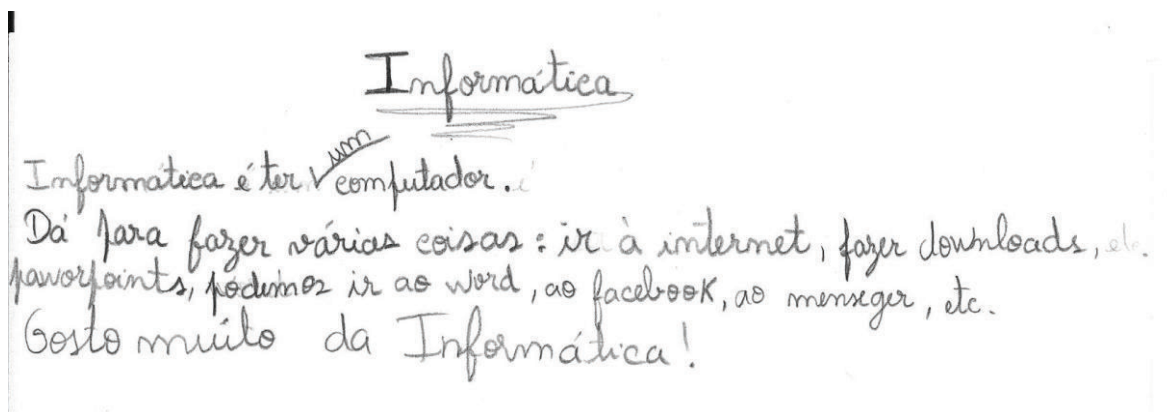 Informática
Informática é ter um computador.
Dá para fazer várias coisas: ir à internet, fazer downloads,
paworpoints, podemos ir ao word, ao facebook, ao menseger, etc.
Gosto muito da Informática!